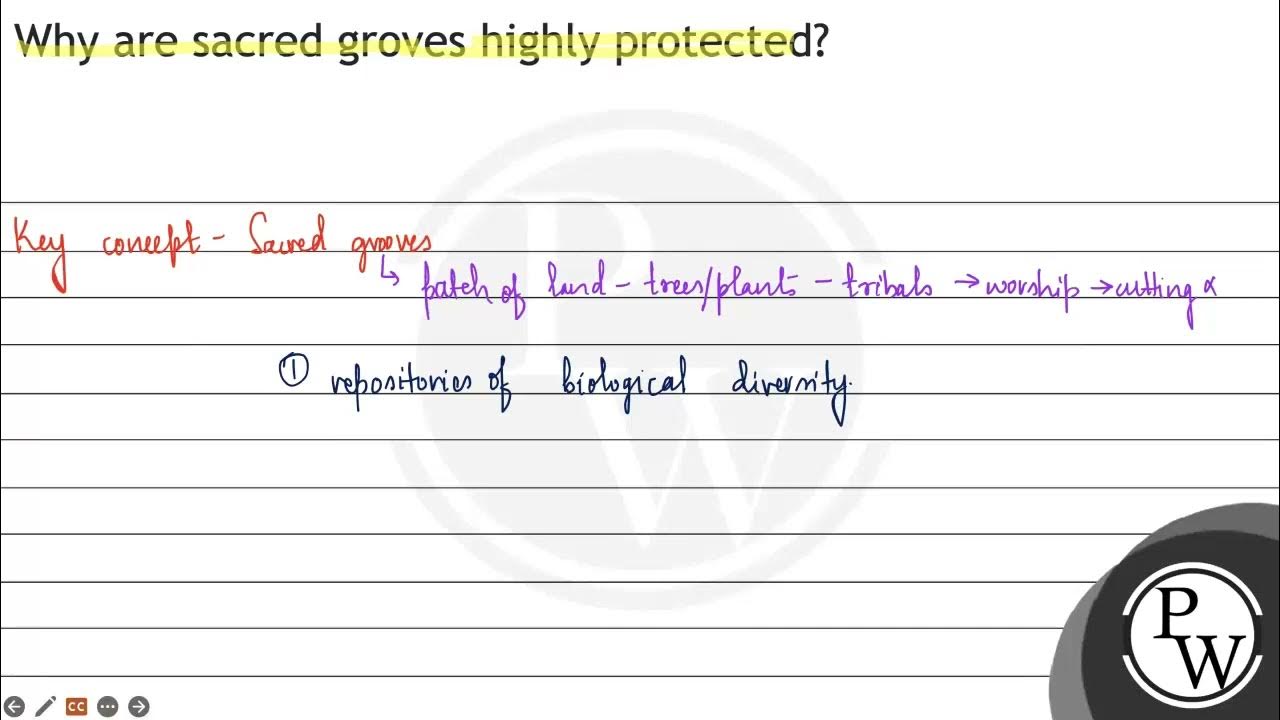 Why are sacred groves highly protected?
Key concept - Sacred grooves
↳ patch of land - trees/plants - tribals → worship → cutting x
① repositories of biological diversity.
PW
CC
P
W